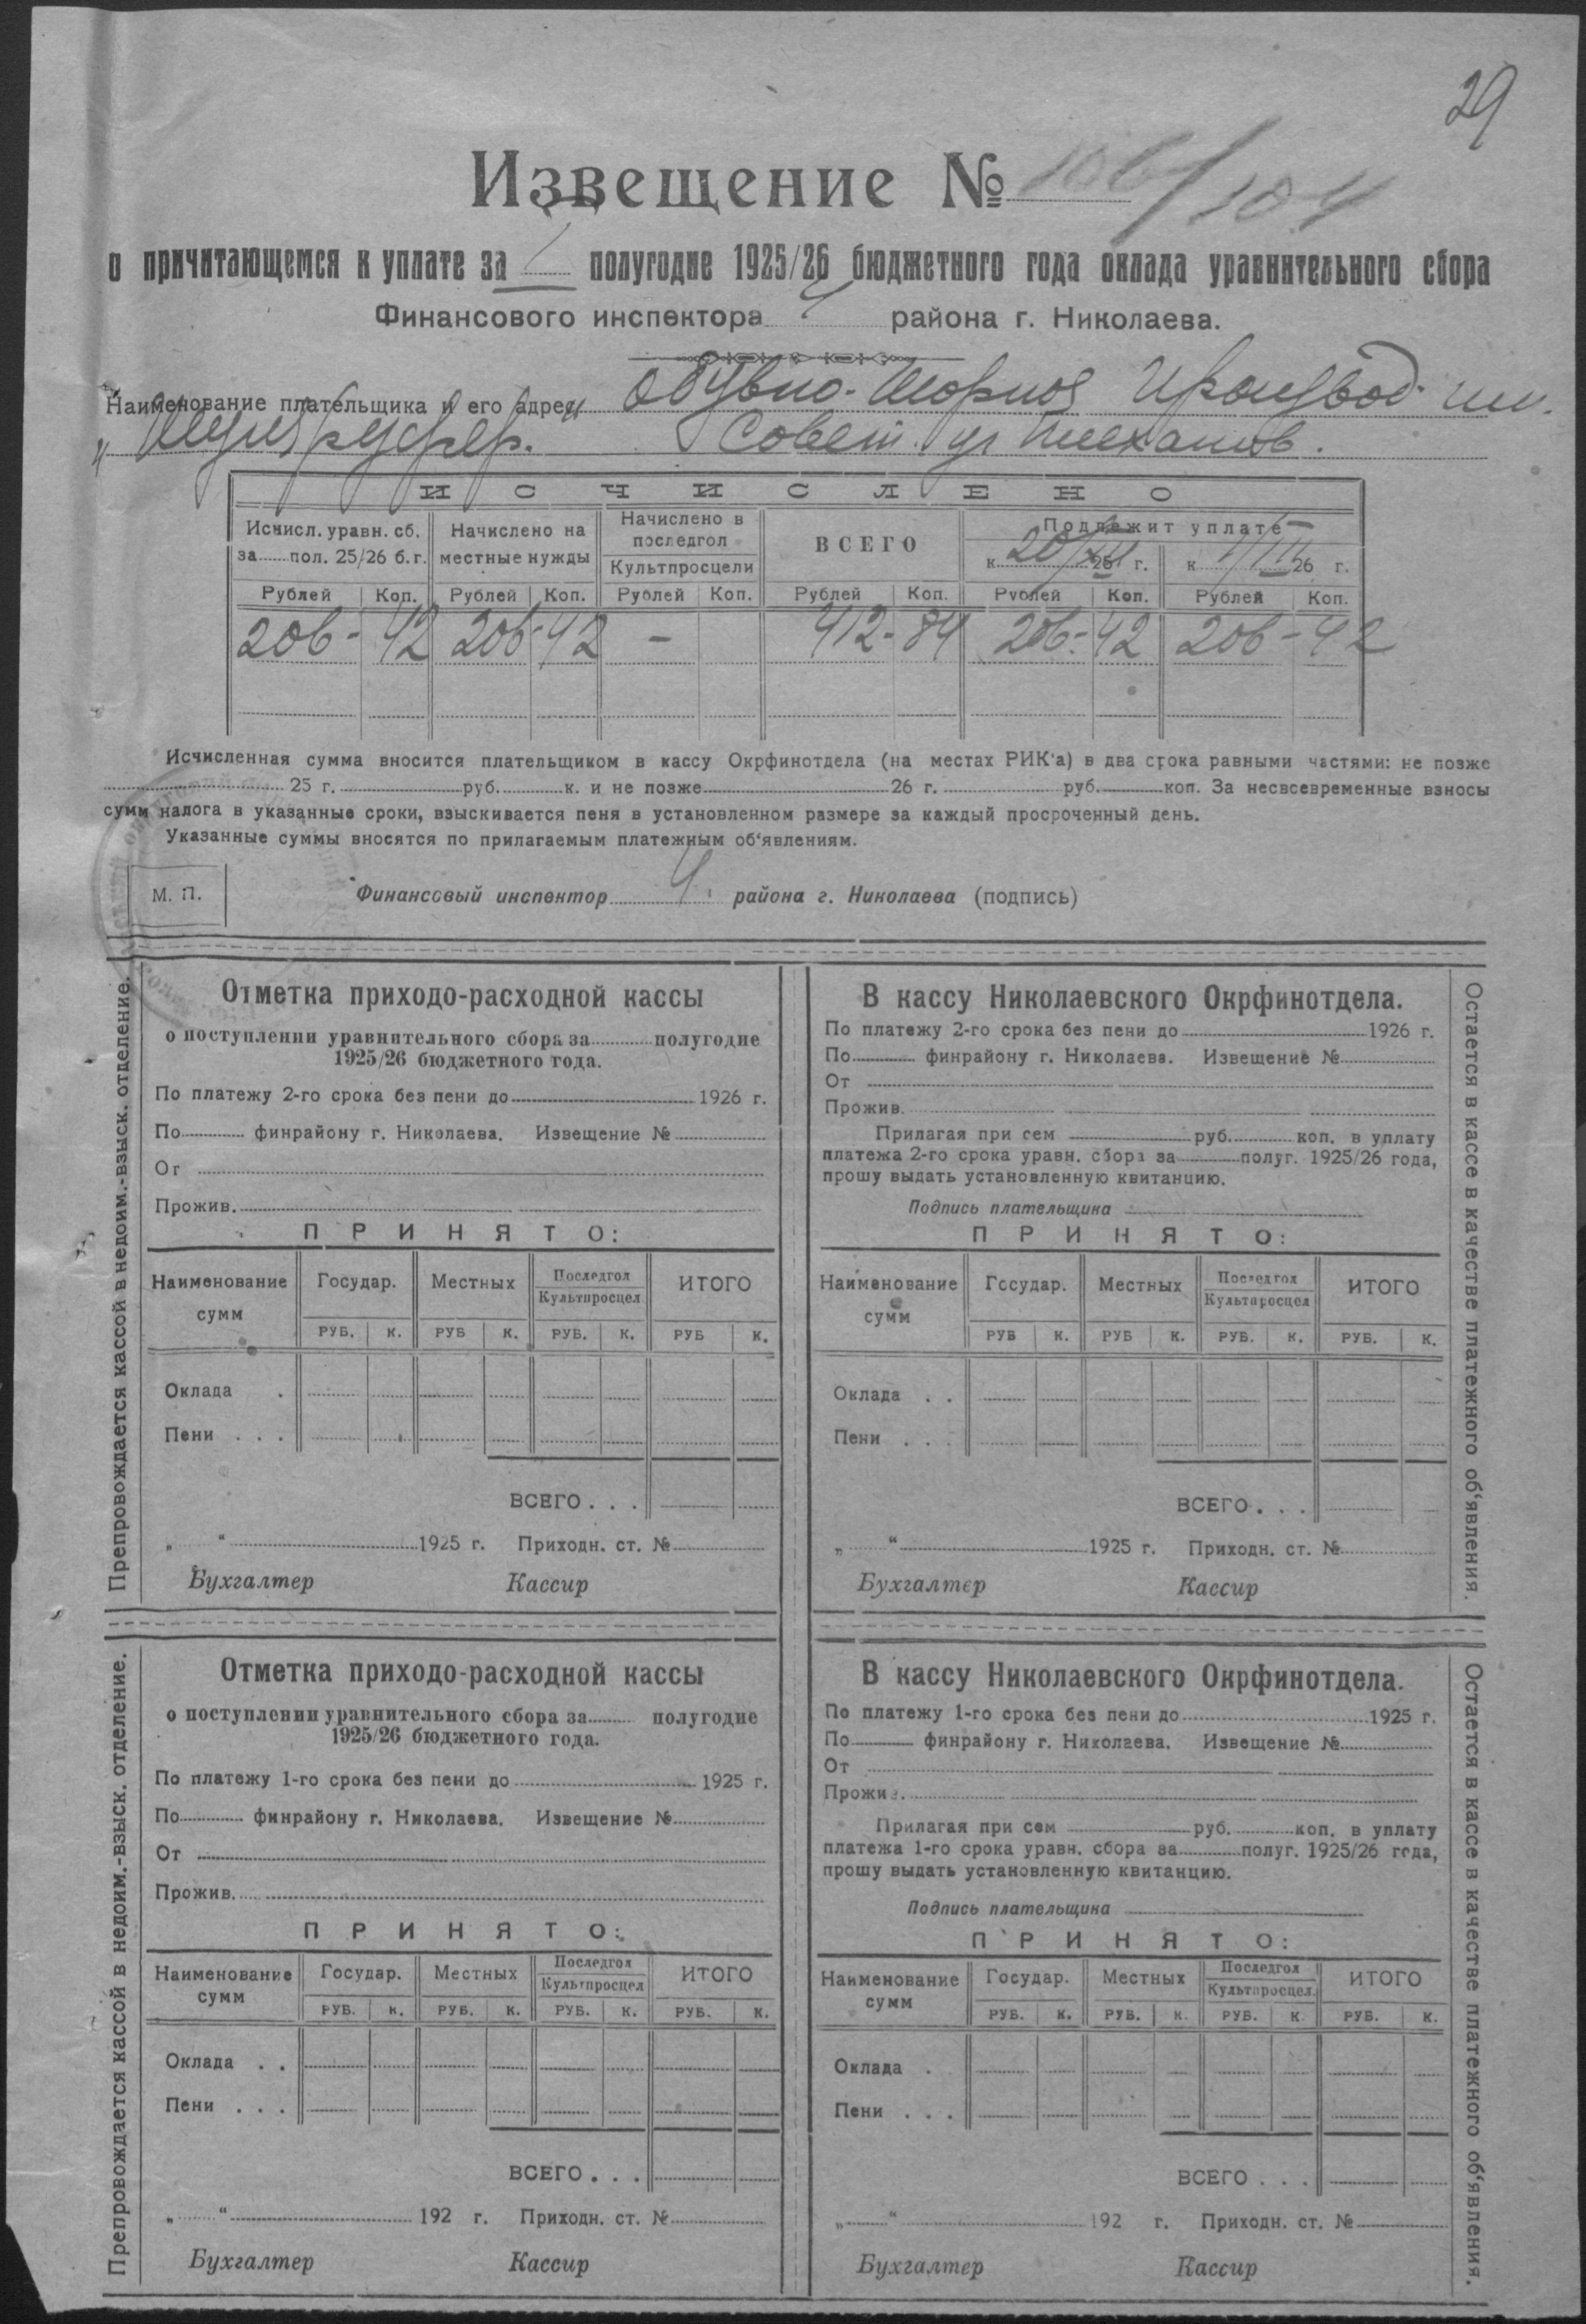 29
Извещение № 106/104
о причитающемся к уплате за I полугодие 1925/26 бюджетного года оклада уравнительного сбора
Финансового инспектора 4 района г. Николаева.
Наименование плательщика и его адрес Обувно-Шорное
Совет. ул
ИСЧИСЛЕНО
Исчисл. уравн. сб. за пол. 25/26 б.г. Начислено на местные нужды Начислено в последгол Культпросцели ВСЕГО Подлежит уплате
к 20/XII 25 г. к 1/III 26 г.
Рублей Коп. Рублей Коп. Рублей Коп. Рублей Коп. Рублей Коп. Рублей Коп.
206-42 206-42 - 412-84 206-42 206-42
Исчисленная сумма вносится плательщиком в кассу Окрфинотдела (на местах РИК'а) в два срока равными частями: не позже
25 г. руб. к. и не позже 26 г. руб. коп. За несвсевременные взносы
сумм налога в указанные сроки, взыскивается пеня в установленном размере за каждый просроченный день.
Указанные суммы вносятся по прилагаемым платежным об'явлениям.
М. П.
Финансовый инспектор 4 района г. Николаева (подпись)
Препровождается кассой в недоим.-взыск. отделение.
Отметка приходо-расходной кассы
о поступлении уравнительного сбора за полугодие
1925/26 бюджетного года.
По платежу 2-го срока без пени до 1926 г.
По финрайону г. Николаева. Извещение №
От
Прожив.
ПРИНЯТО:
Наименование сумм Государ. Местных Последгол Культпросцел ИТОГО
РУБ. К. РУБ К. РУБ. К. РУБ К.
Оклада .
Пени . . .
ВСЕГО . . .
„ “ 1925 г. Приходн. ст. №
Бухгалтер Кассир
В кассу Николаевского Окрфинотдела.
По платежу 2-го срока без пени до 1926 г.
По финрайону г. Николаева. Извещение №
От
Прожив.
Прилагая при сем руб. коп. в уплату
платежа 2-го срока уравн. сбора за полуг. 1925/26 года,
прошу выдать установленную квитанцию.
Подпись плательщика
ПРИНЯТО:
Наименование сумм Государ. Местных Последгол Культпросцел ИТОГО
РУБ К. РУБ К. РУБ. К. РУБ. К.
Оклада . .
Пени . . .
ВСЕГО . . .
„ “ 1925 г. Приходн. ст. №
Бухгалтер Кассир
Остается в кассе в качестве платежного об'явления.
Препровождается кассой в недоим.-взыск. отделение.
Отметка приходо-расходной кассы
о поступлении уравнительного сбора за полугодие
1925/26 бюджетного года.
По платежу 1-го срока без пени до 1925 г.
По финрайону г. Николаева. Извещение №
От
Прожив.
ПРИНЯТО:
Наименование сумм Государ. Местных Последгол Культпросцел ИТОГО
РУБ. К. РУБ. К. РУБ. К. РУБ. К.
Оклада . .
Пени . . .
ВСЕГО . . .
„ “ 192 г. Приходн. ст. №
Бухгалтер Кассир
В кассу Николаевского Окрфинотдела.
По платежу 1-го срока без пени до 1925 г.
По финрайону г. Николаева. Извещение №
От
Прожив.
Прилагая при сем руб. коп. в уплату
платежа 1-го срока уравн. сбора за полуг. 1925/26 года,
прошу выдать установленную квитанцию.
Подпись плательщика
ПРИНЯТО:
Наименование сумм Государ. Местных Последгол Культпросцел. ИТОГО
РУБ. К. РУБ. К. РУБ. К. РУБ. К.
Оклада .
Пени . . .
ВСЕГО . . .
„ “ 192 г. Приходн. ст. №
Бухгалтер Кассир
Остается в кассе в качестве платежного об'явления.